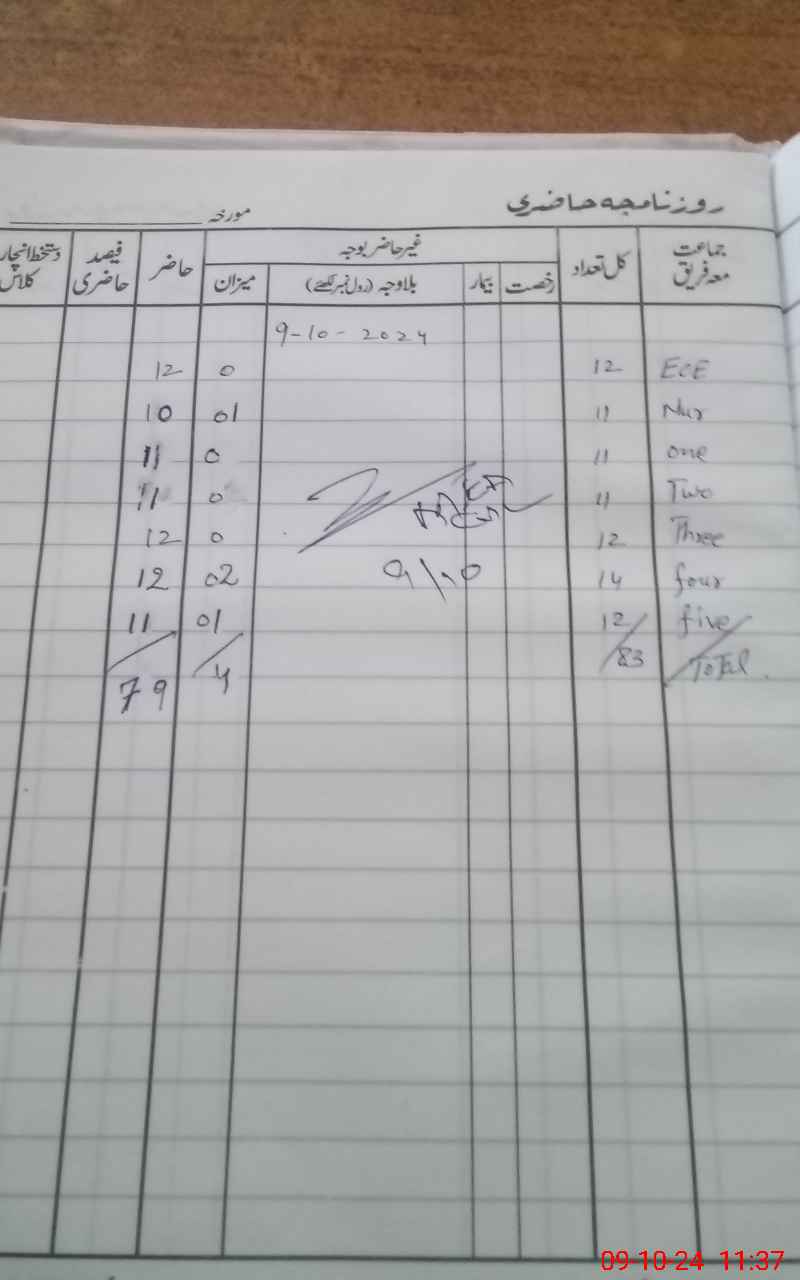 روزنامچہ حاضری
مورخہ
جماعت معہ فریق کل تعداد غیر حاضر بوجہ حاضر فیصد حاضری دستخط انچارج کلاس
رخصت بیمار بلاوجہ (رول نمبر لکھئے) میزان
9-10-2024
ECE 12 0 12
Nur 11 01 10
one 11 0 11
Two 11 0 11
Three 12 0 12
four 14 02 12
9/10
five 12 01 11
Total 83 4 79
09-10-24 11:37